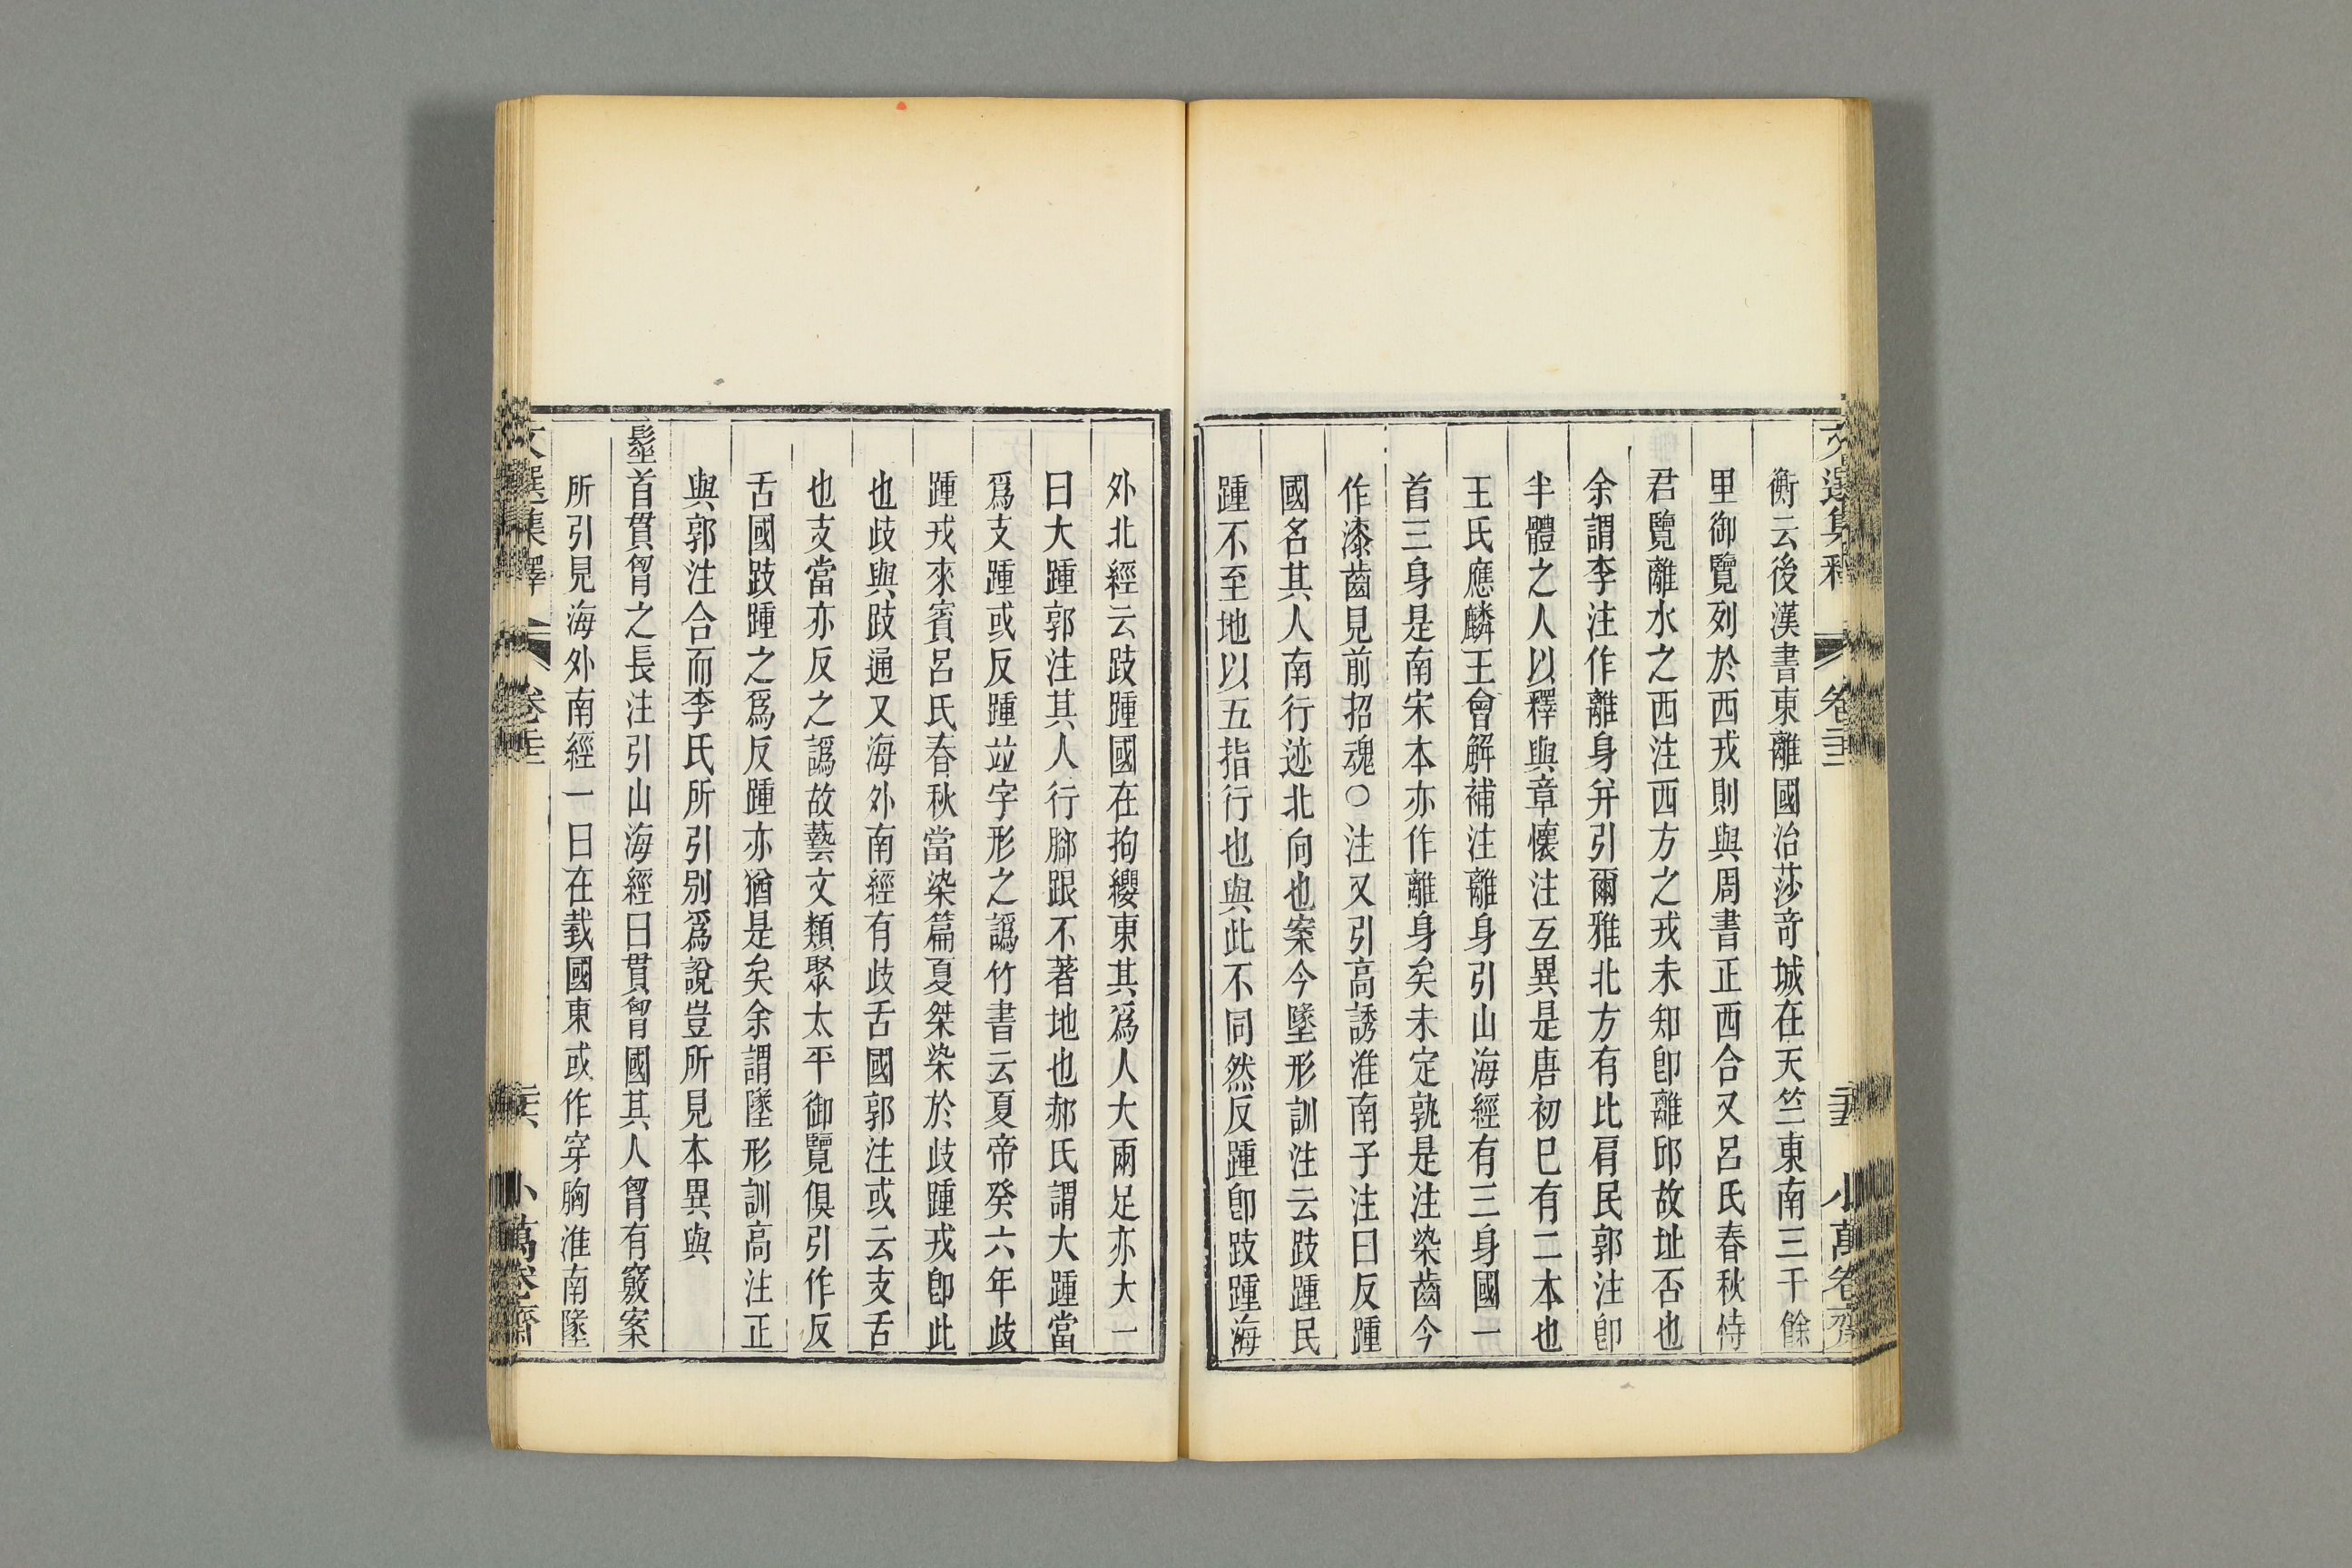 文選集釋 卷二十三 小萬卷齋
衡云後漢書東離國治莎奇城在天竺東南三千餘
里御覽列於西戎則與周書正西合又呂氏春秋恃
君覽離水之西注西方之戎未知卽離邱故址否也
余謂李注作離身并引爾雅北方有比肩民郭注卽
半體之人以釋與章懷注互異是唐初巳有二本也
王氏應麟王會解補注離身引山海經有三身國一
首三身是南宋本亦作離身矣未定孰是注染齒今
作漆齒見前招魂○注又引高誘淮南子注曰反踵
國名其人南行迹北向也案今墬形訓注云跂踵民
踵不至地以五指行也與此不同然反踵卽跂踵海
外北經云跂踵國在拘纓東其爲人大兩足亦大一
曰大踵郭注其人行腳跟不著地也郝氏謂大踵當
爲支踵或反踵竝字形之譌竹書云夏帝癸六年歧
踵戎來賓呂氏春秋當染篇夏桀染於歧踵戎卽此
也歧與跂通又海外南經有歧舌國郭注或云支舌
也支當亦反之譌故藝文類聚太平御覽俱引作反
舌國跂踵之爲反踵亦猶是矣余謂墬形訓高注正
與郭注合而李氏所引別爲說豈所見本異與
髽首貫胷之長注引山海經曰貫胷國其人胷有竅案
所引見海外南經一曰在臷國東或作穿胸淮南墬
文選集釋 卷二十三 小萬卷齋